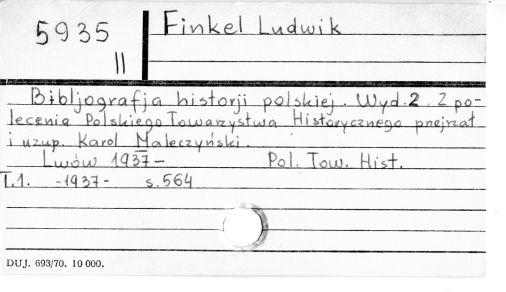 5935
II
Finkel Ludwik
Bibljografja historji polskiej. Wyd. 2. Z po-
lecenia Polskiego Towarzystwa Historycznego przejrzał
i uzup. Karol Maleczyński.
Lwów 1937- Pol. Tow. Hist.
T.1. -1937- s. 564
DUJ. 693/70. 10 000.